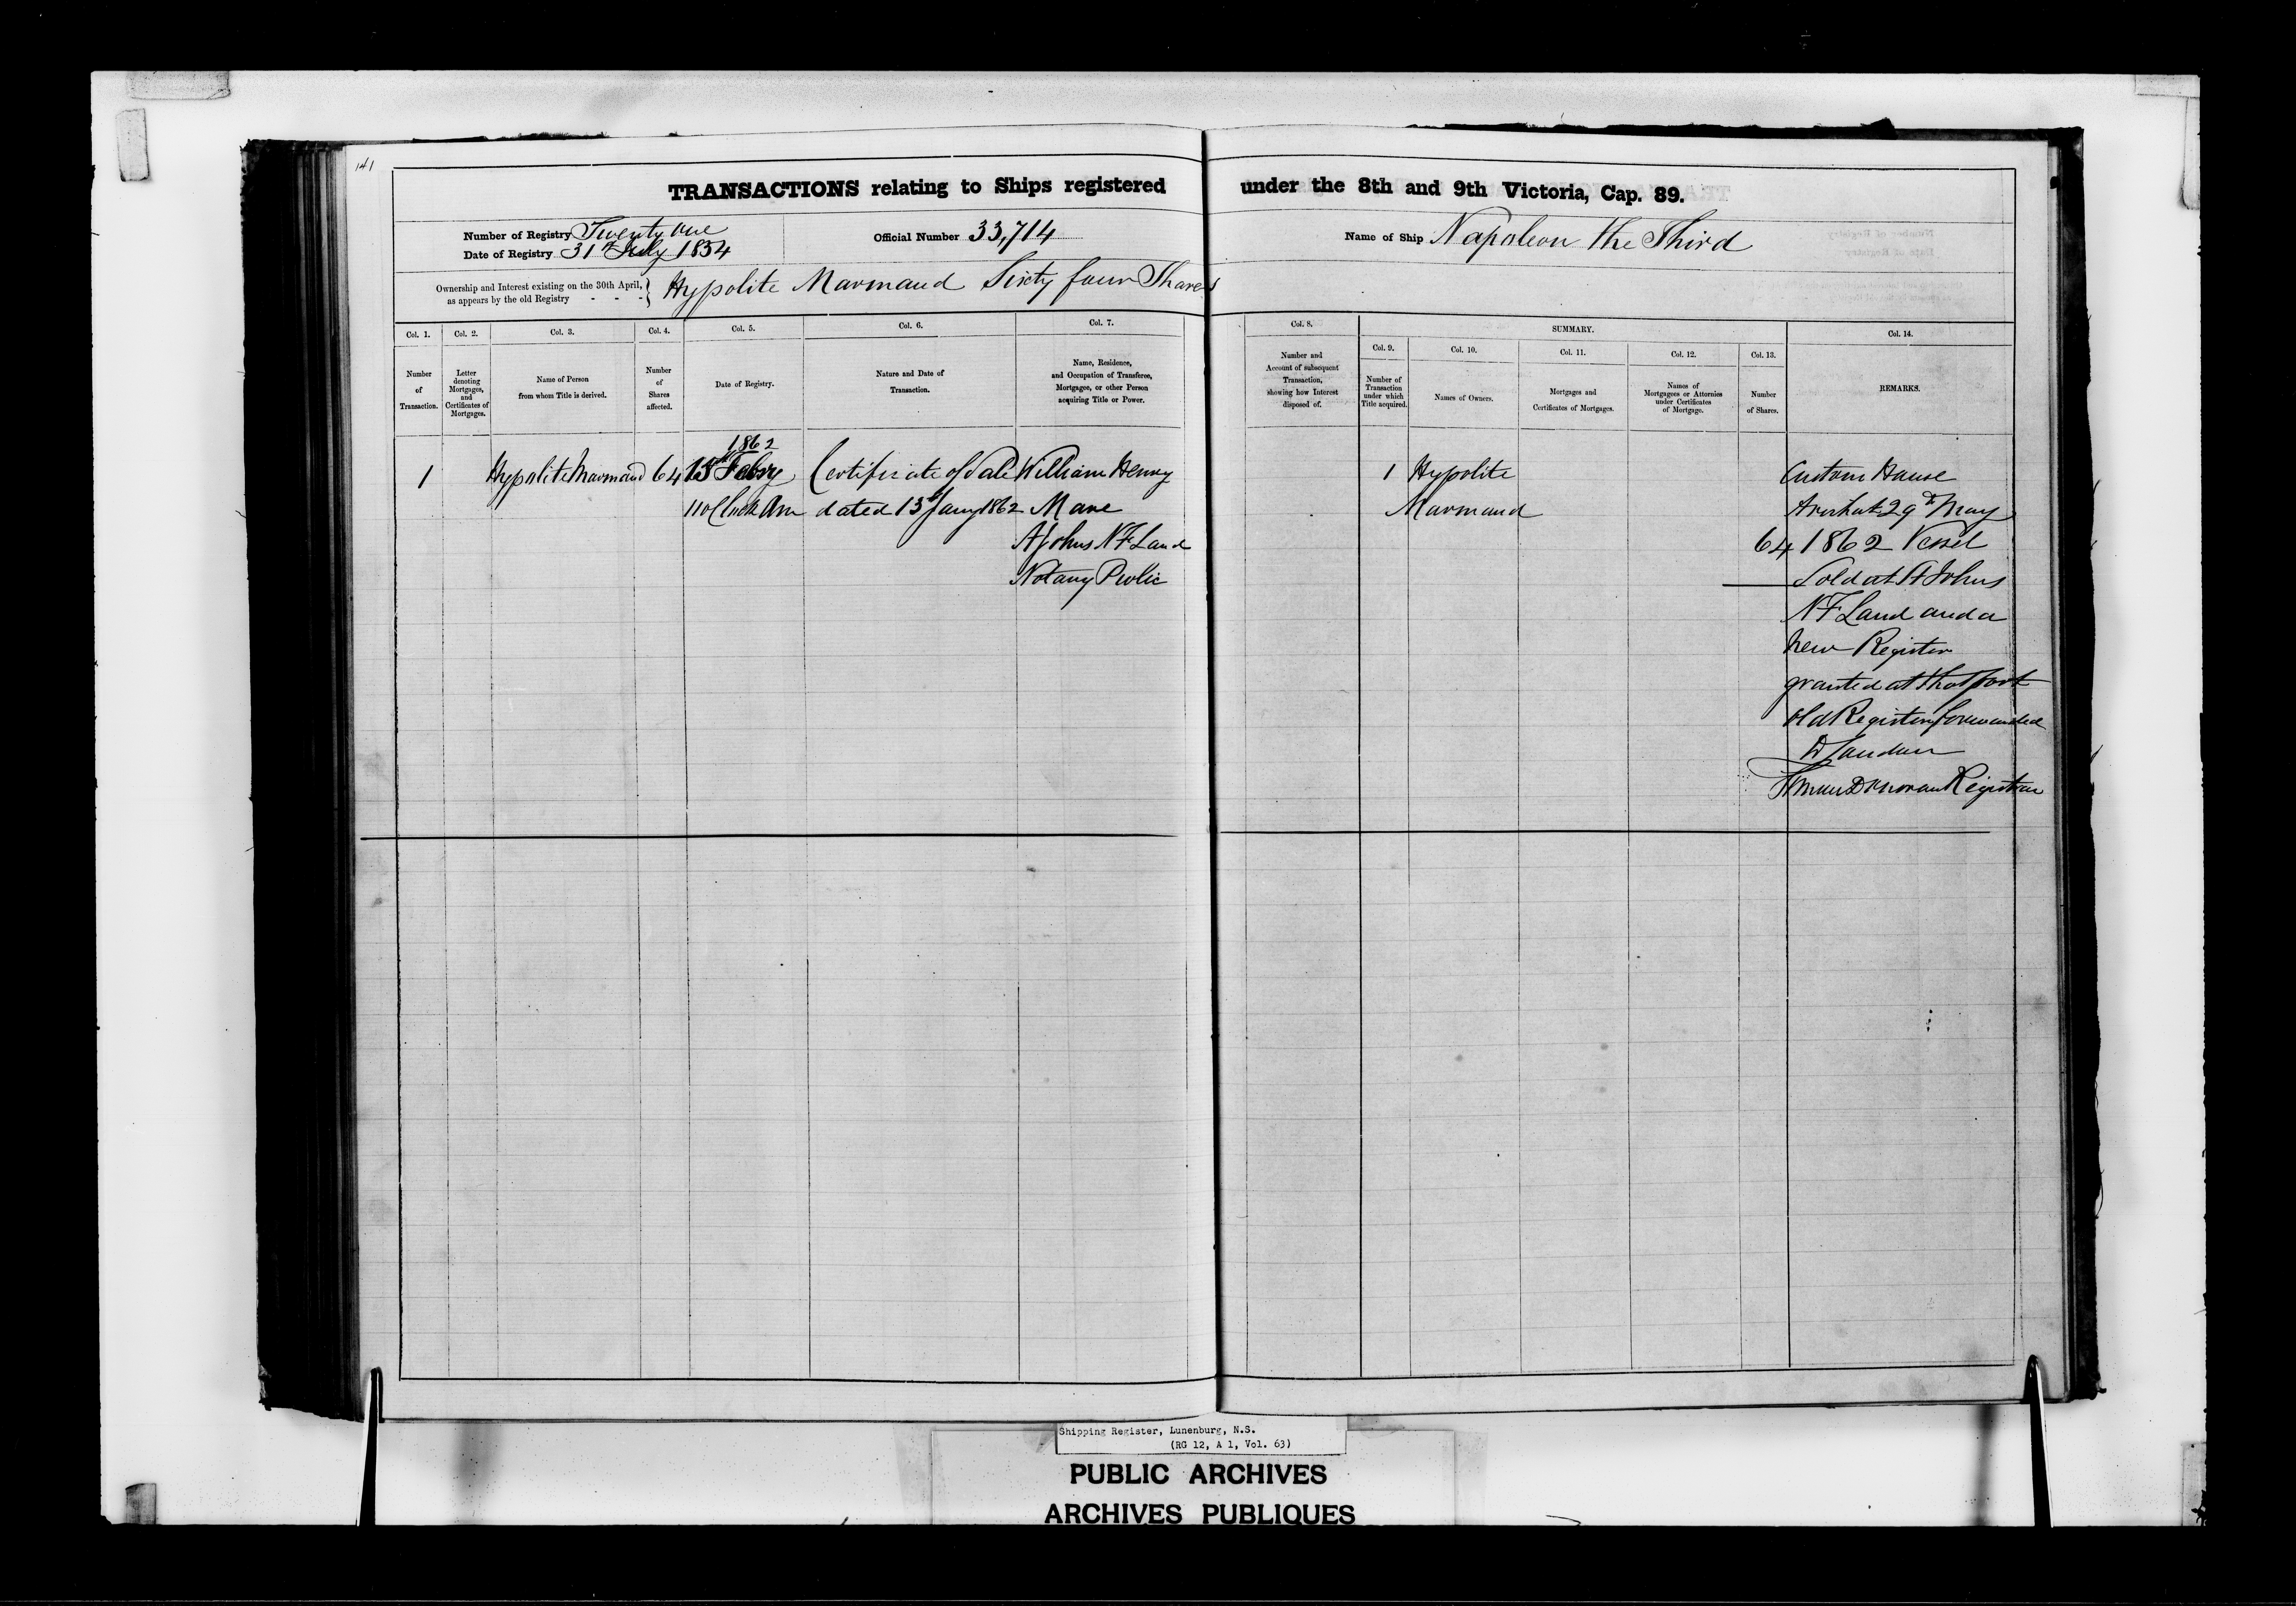 141
TRANSACTIONS relating to Ships registered under the 8th and 9th Victoria, Cap. 89.
Number of Registry Twenty one
Date of Registry 31st July 1854
Official Number 33,714
Name of Ship Napoleon the Third
Ownership and Interest existing on the 30th April,
as appears by the old Registry - - - } Hypolite Marmaud Sixty four Shares
Col. 1.
Number
of
Transaction.
Col. 2.
Letter
denoting
Mortgages,
and
Certificates of
Mortgages.
Col. 3.
Name of Person
from whom Title is derived.
Col. 4.
Number
of
Shares
affected.
Col. 5.
Date of Registry.
Col. 6.
Nature and Date of
Transaction.
Col. 7.
Name, Residence,
and Occupation of Transferee,
Mortgagee, or other Person
acquiring Title or Power.
Col. 8.
Number and
Account of subsequent
Transaction,
showing how Interest
disposed of.
SUMMARY.
Col. 9.
Number of
Transaction
under which
Title acquired.
Col. 10.
Names of Owners.
Col. 11.
Mortgages and
Certificates of Mortgages.
Col. 12.
Names of
Mortgagees or Attornies
under Certificates
of Mortgage.
Col. 13.
Number
of Shares.
Col. 14.
REMARKS.
1
Hypolite Marmaud
64
1862
13 Febry
11 oClock Am
Certificate of Sale
dated 13th Jany 1862
William Henry
Mare
St Johns NF Land
Notary Public
1
Hypolite
Marmaud
64
Custom House
Arichat 29th May
1862 Vessel
Sold at St Johns
NF Land and a
new Register
granted at that port
old Register forwarded
Registrar
Shipping Register, Lunenburg, N.S.
(RG 12, A 1, Vol. 63)
PUBLIC ARCHIVES
ARCHIVES PUBLIQUES